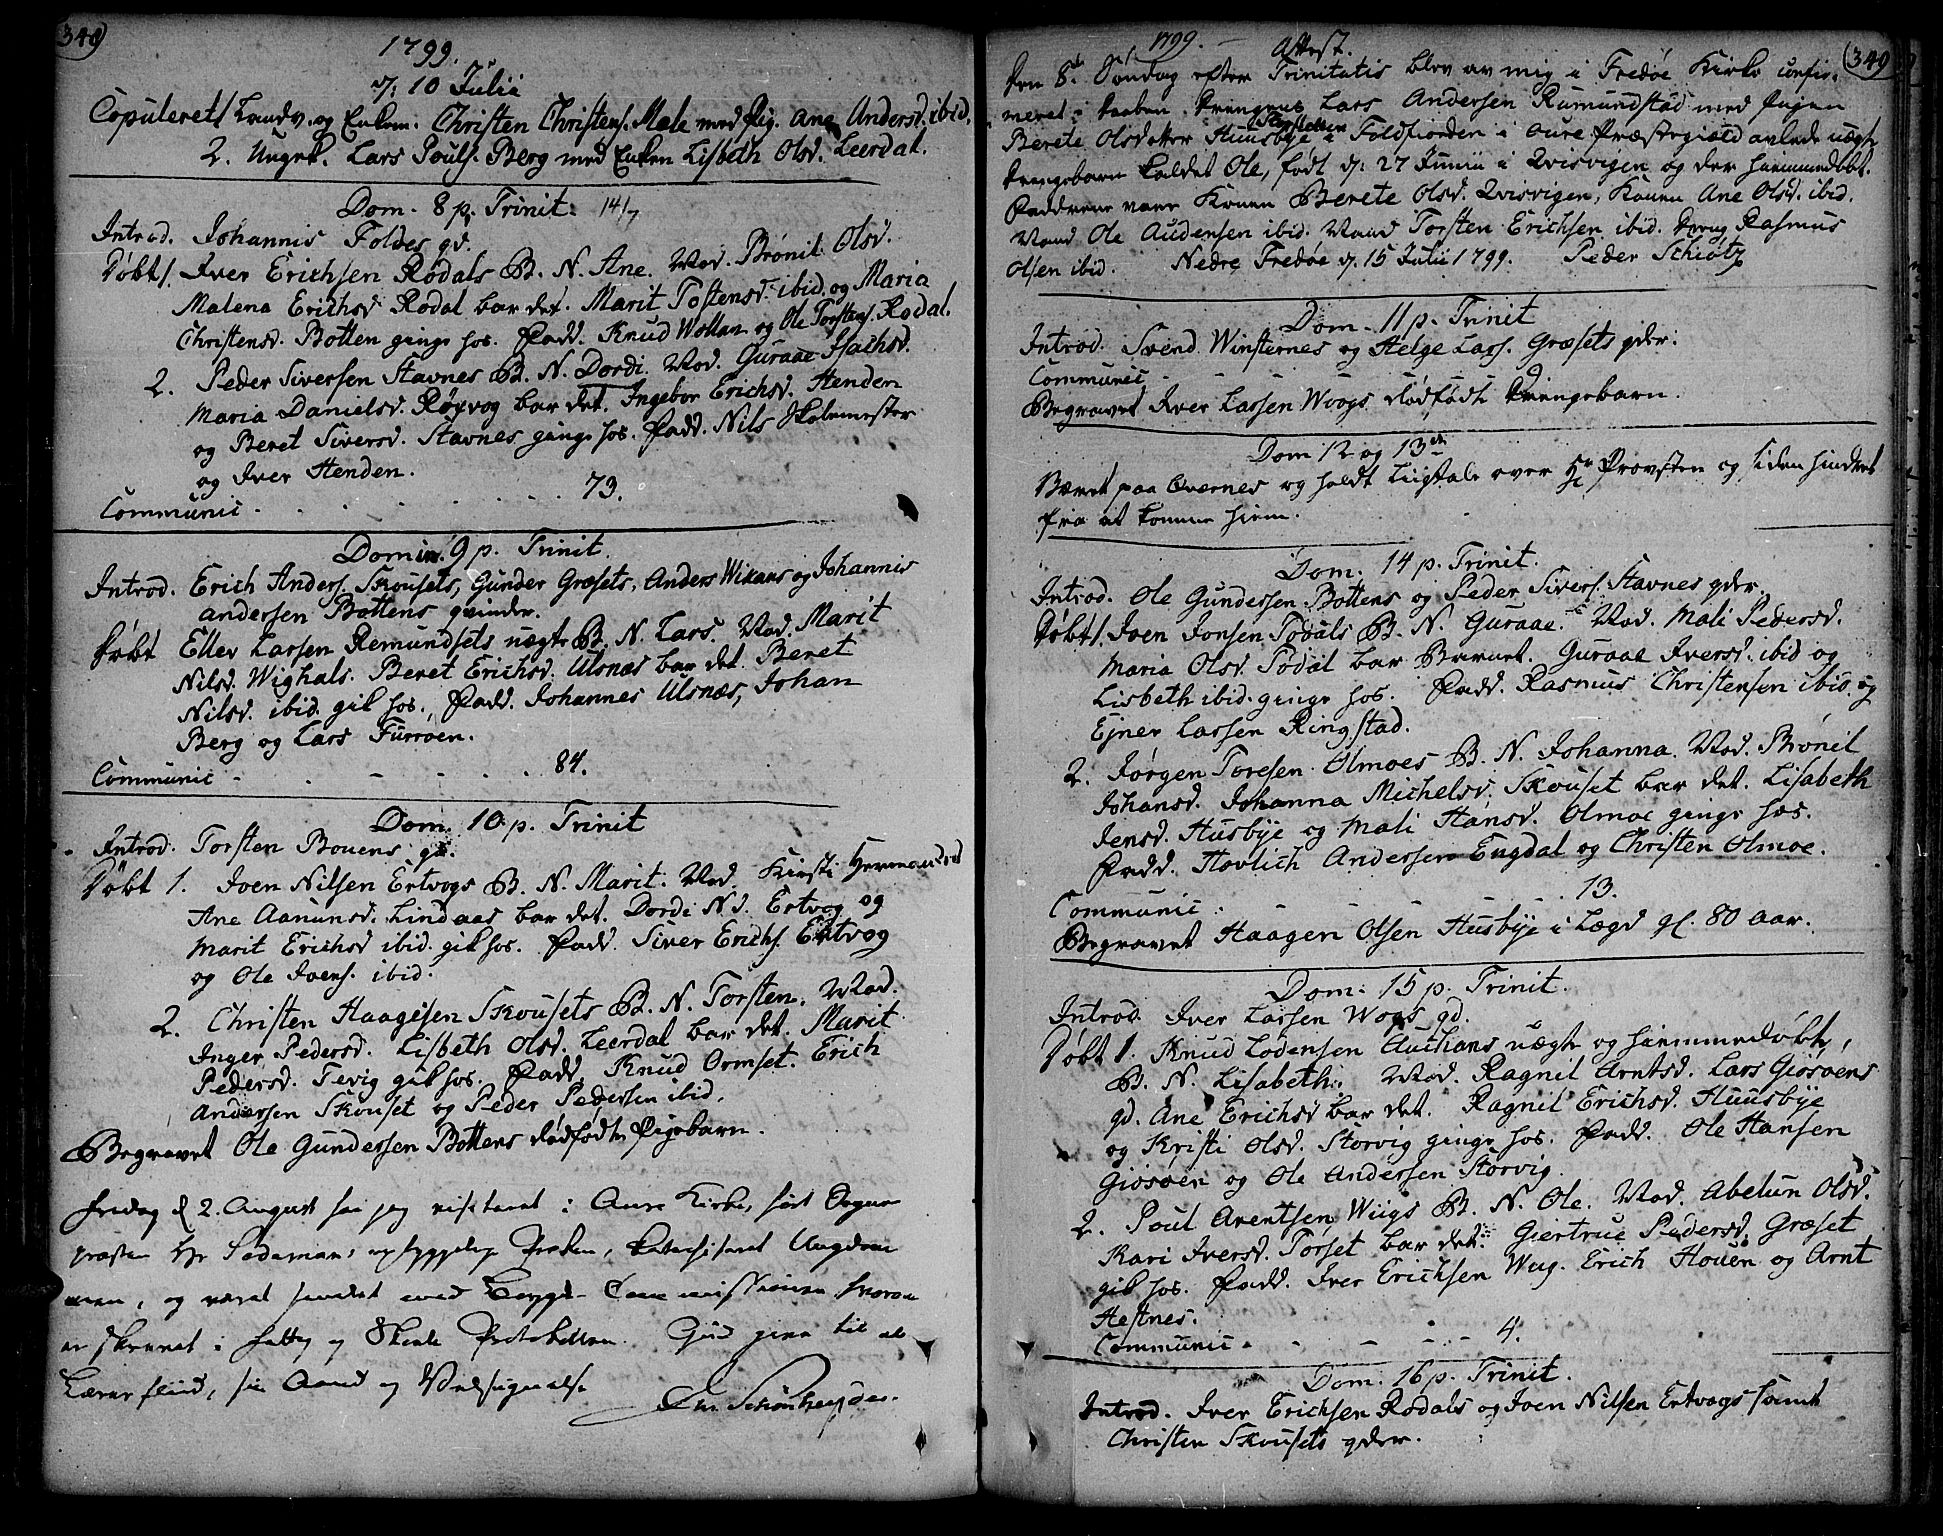 340
1799.
d: 10 Julii
Copuleret 1 Landv. og Enkem. Christen Christens. Male med Pig. Ane Andersd. ibid.
2. Ungk. Lars Pouls. Berg med Enken Lisbeth Olsd. Leerdal.
Dom. 8 p. Trinit. 14/7
Introd. Johannis Foldes qv.
Døbt 1. Iver Erichsen Rodals B. N. Ane. Mod. Brønil Olsd.
Malena Erichsd Rodal bar det. Marit Tostensd. ibid. og Maria
Christensd. Botten ginge hos. Fadd. Knud Wollan og Ole Torstens. Rodal.
2. Peder Siversen Stavnes B. N. Dordi. Mod. Guraae Isachsd.
Maria Danielsd. Røxvog bar det. Ingebor Erichsd. Henden
og Beret Siversd. Stavnes ginge hos. Fadd. Nils Skolemester
og Iver Henden.
Communic - . . . . . 73.
Domin 9 p. Trinit.
Introd. Erich Anders. Skousets, Gunder Græsets, Anders Wikans og Johannis
Andersen Bottens qvinder.
Døbt Eller Larsen Remundsets uægte B. N. Lars. Mod. Marit
Nilsd. Wighals. Beret Erichsd. Ulsnæs bar det. Beret
Nilsd. ibid. gik hos. Fadd. Johannes Ulsnæs, Johan
Berg og Lars Furroen.
Communic - . . . . . 84.
Dom. 10 p. Trinit
Introd. Torsten Bouens qv.
Døbt 1. Joen Nilsen Ertvogs B. N. Marit. Mod. Kirsti Hermansd
Ane Aanunsd. Lindaas bar det. Dordi N.d. Ertvog og
Marit Erichsd ibid. gik hos. Fadd. Siver Erichs. Ertvog
og Ole Joens. ibid.
2. Christen Haagesen Skousets B. N. Torsten. Mod.
Inger Pedersd. Lisbeth Olsd. Leerdal bar det. Marit
Pedersd. Tevig gik hos. Fadd. Knud Ormset. Erich
Andersen Skouset og Peder Pedersen ibid.
Begravet Ole Gundersen Bottens dødfødte Pigebarn.
Fredag d 2. August har jeg visiteret i Aure Kirke, hørt Sogne
præsten Hr opbyggelig Præken, Catechiseret Ungdom
men, og været samlet med Commissionen hvorom
er skrevet i og Skole Protokollen. Gud give til al
Lærer fliid, sin Aand og Velsignelse
Schönheyder.
1799. - Attest. 349
Den 8de Søndag efter Trinitatis blev av mig i Fredøe Kirke confir-
meret i Daaben Drengens Lars Andersen Rumundstad med Pigen
Berete Olsdatter Huusbye i Foldfiorden i Aure Præstegield avlede uægte
Drengebarn kaldet Ole, født d: 27 Junii i Qvisvigen og der hiemmedøbt.
Faddrene vare Konen Berete Olsd. Qvisvigen, Konen Ane Olsd. ibid.
Mand Ole Audensen ibid. Mand Torsten Erichsen ibid. Dreng Rasmus
Olsen ibid. Nedre Fredøe d. 15 Julii 1799. Peder Schiøtz
Dom. 11 p. Trinit
Introd. Svend Winsternes og Helge Lars. Græsets qder.
Communic - - - - - 9
Begravet Iver Larsen Woogs dødfødte Drengebarn.
Dom 12 og 13de
Været paa Qvernes og holdt Liigtale over Hr Provsten og siden hindret
fra at komme hiem.
Dom. 14 p. Trinit.
Introd. Ole Gundersen Bottens og Peder Sivers. Stavnes qder.
Døbt 1. Joen Jonsen Todals B. N. Guraae. Mod. Mali Pedersd.
Maria Olsd. Todal bar Barnet. Guraae Iversd. ibid og
Lisbeth ibid. ginge hos. Fadd. Rasmus Christensen ibid. og
Ejner Larsen Ringstad.
2. Jørgen Toresen Olmoes B. N. Johanna. Mod. Brønil
Johansd. Johanna Michelsd. Skouset bar det. Lisabeth
Jensd. Husbye og Mali Hansd. Olmoe ginge hos.
Fadd. Hovlich Andersen Engdal og Christen Olmoe.
Communic . - - - - - 13.
Begravet Haagen Olsen Husbye i Lægd gl. 80 Aar.
Dom. 15 p. Trinit.
Introd. Iver Larsen Wogs qd.
Døbt 1. Knud Lodensen Auchans uægte og hiemmedøbte,
B. N. Lisabeth. Mod. Ragnil Arntsd. Lars Giøsøens
qd. Ane Erichsd bar det. Ragnil Erichsd. Huusbye
og Kristi Olsd. Storvig ginge hos. Fadd. Ole Hansen
Giøsøen og Ole Andersen Storvig.
2. Poul Arentsen Wiigs B. N. Ole. Mod. Abelun Olsd.
Kari Iversd. Torset bar det. Giertrue Pedersd. Græset
gik hos. Fadd. Iver Erichsen Wug. Erich Houen og Arnt
Hestnes.
Communic - - - . - - 4.
Dom. 16 p. Trinit.
Introd. Iver Erichsen Rodals og Joen Nilsen Ertvogs samt
Christen Skousets qder.